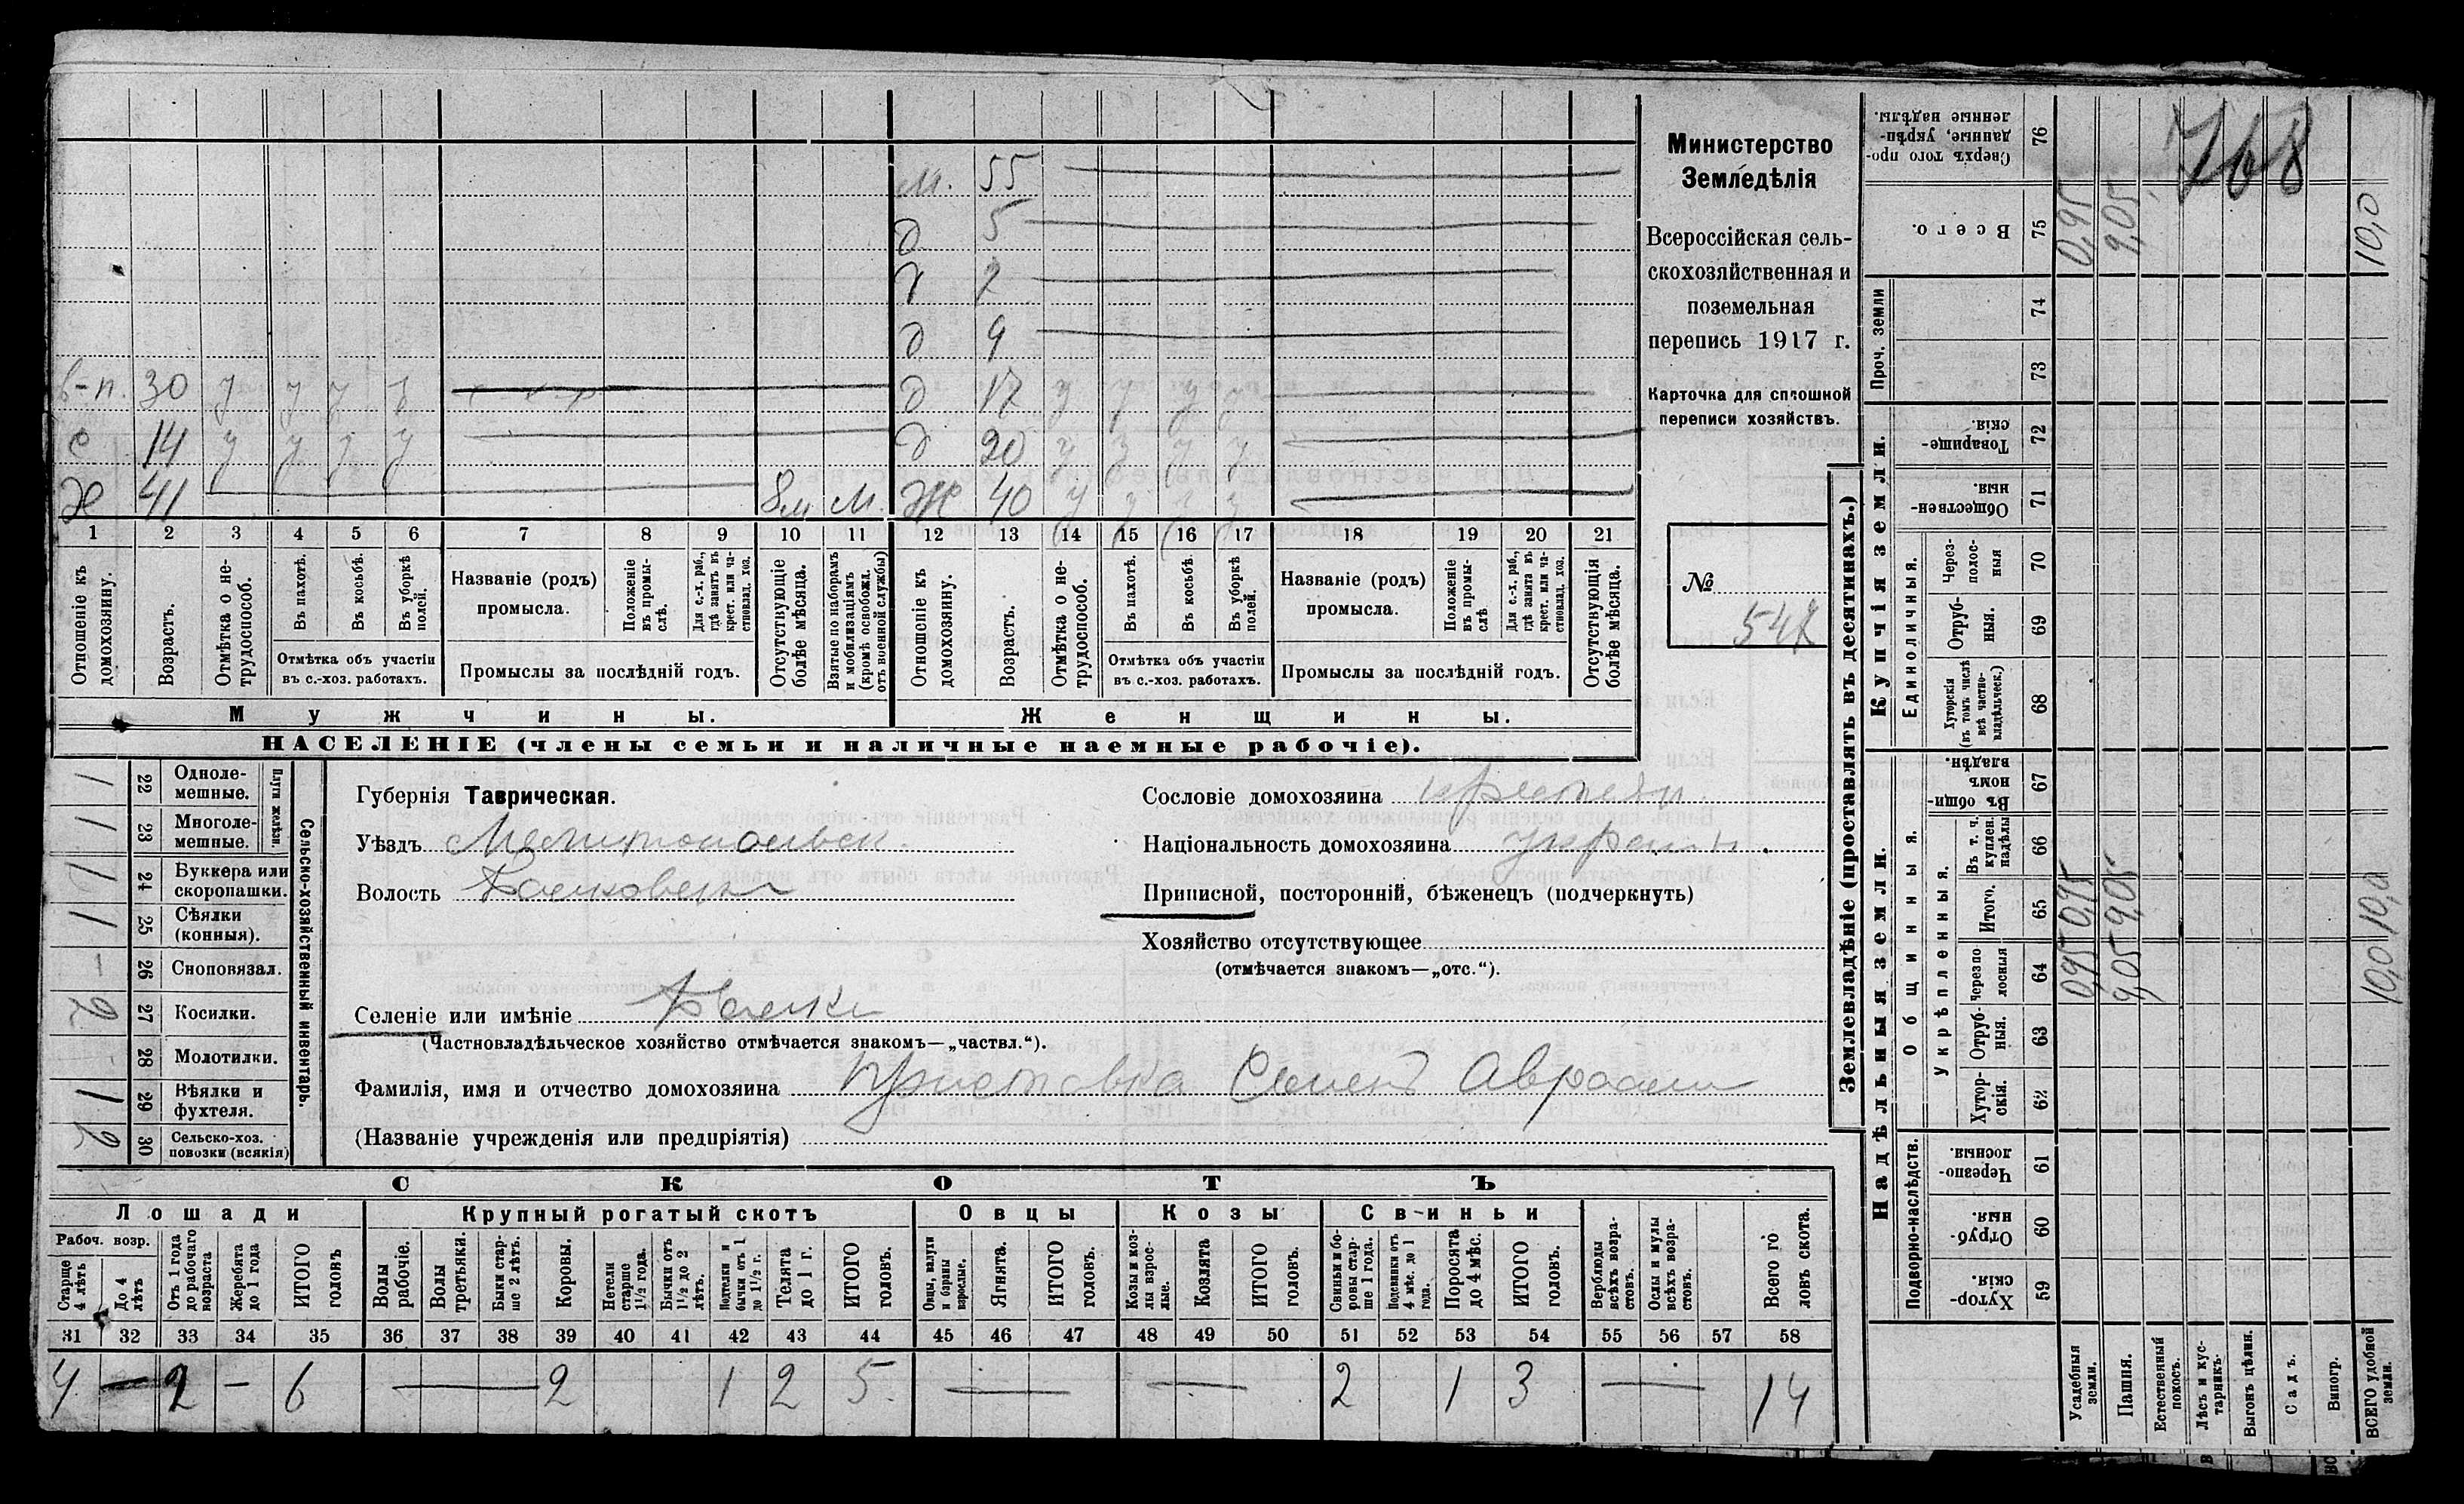 768
Министерство
Земледѣлія
Всероссійская сель-
скохозяйственная и
поземельная
перепись 1917 г.
Карточка для сплошной
переписи хозяйствъ.
№
547
м. 55
д 5
д
д 9
в-п. 30 у у у у д 17 у у у у
с 14 у у у у д 20 у у у у
Х 41 8м М. Ж 40 у у у у
1 2 3 4 5 6 7 8 9 10 11 12 13 14 15 16 17 18 19 20 21
Отношеніе къ домохозяину.
Возрастъ.
Отмѣтка о не-трудоспособ.
Въ пахотѣ.
Въ косьбѣ.
Въ уборкѣ полей.
Отмѣтка объ участіи
въ с.-хоз. работахъ.
Названіе (родъ)
промысла.
Положеніе въ промы-слѣ.
Для с.-х. раб., гдѣ занятъ въ крест. или ча-стновлад. хоз.
Промыслы за послѣдній годъ.
Отсутствующіе болѣе мѣсяца.
Взятые по наборамъ и мобилизаціямъ (кромѣ освобожд. отъ военной службы)
Отношеніе къ домохозяину.
Возрастъ.
Отмѣтка о не-трудоспособ.
Въ пахотѣ.
Въ косьбѣ.
Въ уборкѣ полей.
Отмѣтка объ участіи
въ с.-хоз. работахъ.
Названіе (родъ)
промысла.
Положеніе въ промы-слѣ
Для с.-х. раб., гдѣ занята въ крест. или ча-стновлад. хоз.
Промыслы за послѣдній годъ.
Отсутствующія болѣе мѣсяца.
Мужчины.
Женщины.
НАСЕЛЕНІЕ (члены семьи и наличные наемные рабочіе).
Сельско-хозяйственный инвентарь.
Плуги желѣзн.
1 22 Одноле-мешные.
1 23 Многоле-мешные.
1 24 Буккера или скоропашки.
1 25 Сѣялки (конныя).
– 26 Сноповязал.
2 27 Косилки.
- 28 Молотилки.
1 29 Вѣялки и фухтеля.
2 30 Сельско-хоз. повозки (всякія)
Губернія Таврическая.
Уѣздъ Мелитопольск.
Волость
Сословіе домохозяина крестьян.
Національность домохозяина украин.
Приписной, посторонній, бѣженецъ (подчеркнуть)
Хозяйство отсутствующее
(отмѣчается знакомъ—„отс.“).
Селеніе или имѣніе
(Частновладѣльческое хозяйство отмѣчается знакомъ—„частвл.“).
Фамилія, имя и отчество домохозяина Христовка Семенъ Авраам
(Названіе учрежденія или предпріятія)
СКОТЪ
Лошади
Крупный рогатый скотъ
Овцы
Козы
Свиньи
Рабоч. возр.
Старше 4 лѣтъ
До 4 лѣтъ
Отъ 1 года до рабочаго возраста
Жеребята до 1 года
ИТОГО головъ
Волы рабочіе.
Волы третьяки.
Быки стар-ше 2 лѣтъ.
Коровы.
Нетели старше 1½ года.
Бычки отъ 1½ до 2 лѣтъ.
Подтелки и бычки отъ 1 до 1½ г.
Телята до 1 г.
ИТОГО головъ.
Овцы, валухи и бараны взрослые.
Ягнята.
ИТОГО головъ.
Козы и коз-лы взрос-лые.
Козлята
ИТОГО головъ.
Свиньи и бо-ровы стар-ше 1 года.
Подсвинки отъ 4 мѣс. до 1 года.
Поросята до 4 мѣс.
ИТОГО головъ.
Верблюды всѣхъ возра-стовъ.
Ослы и мулы всѣхъ возра-стовъ.
Всего го-ловъ скота.
31 32 33 34 35 36 37 38 39 40 41 42 43 44 45 46 47 48 49 50 51 52 53 54 55 56 57 58
4 — 2 – 6 — 2 1 2 5 — — 2 1 3 — 14
Землевладѣніе (проставлять въ десятинахъ.)
Купчія земли.
Надѣльныя земли.
Проч. земли
Единоличныя.
Общинныя.
Укрѣпленныя.
Подворно-наслѣдств.
76 Сверхъ того про-данные, укрѣп-ленные надѣлы.
75 Всего. 0,95 9,05 10,0
74
73
72 Товарище-скія.
71 Обществен-ныя.
70 Через-полос-ныя
69 Отруб-ныя.
68 Хуторскія (въ томъ числѣ всѣ частно-владѣльческ.)
67 Въ общи-номъ владѣн.
66 Въ т. ч. куплен. надѣлы
65 Итого. 0,95 9,05 10,0
64 Черезпо лосныя 0,95 9,05 10,0
63 Отруб-ныя.
62 Хутор-скія.
61 Черезпо-лосныя.
60 Отруб-ныя.
59 Хутор-скія
Усадебныя земли.
Пашня.
Естественный покосъ.
Лѣсъ и кус-тарникъ.
Выгонъ цѣлин.
Садъ.
Виногр.
ВСЕГО удобной земли.